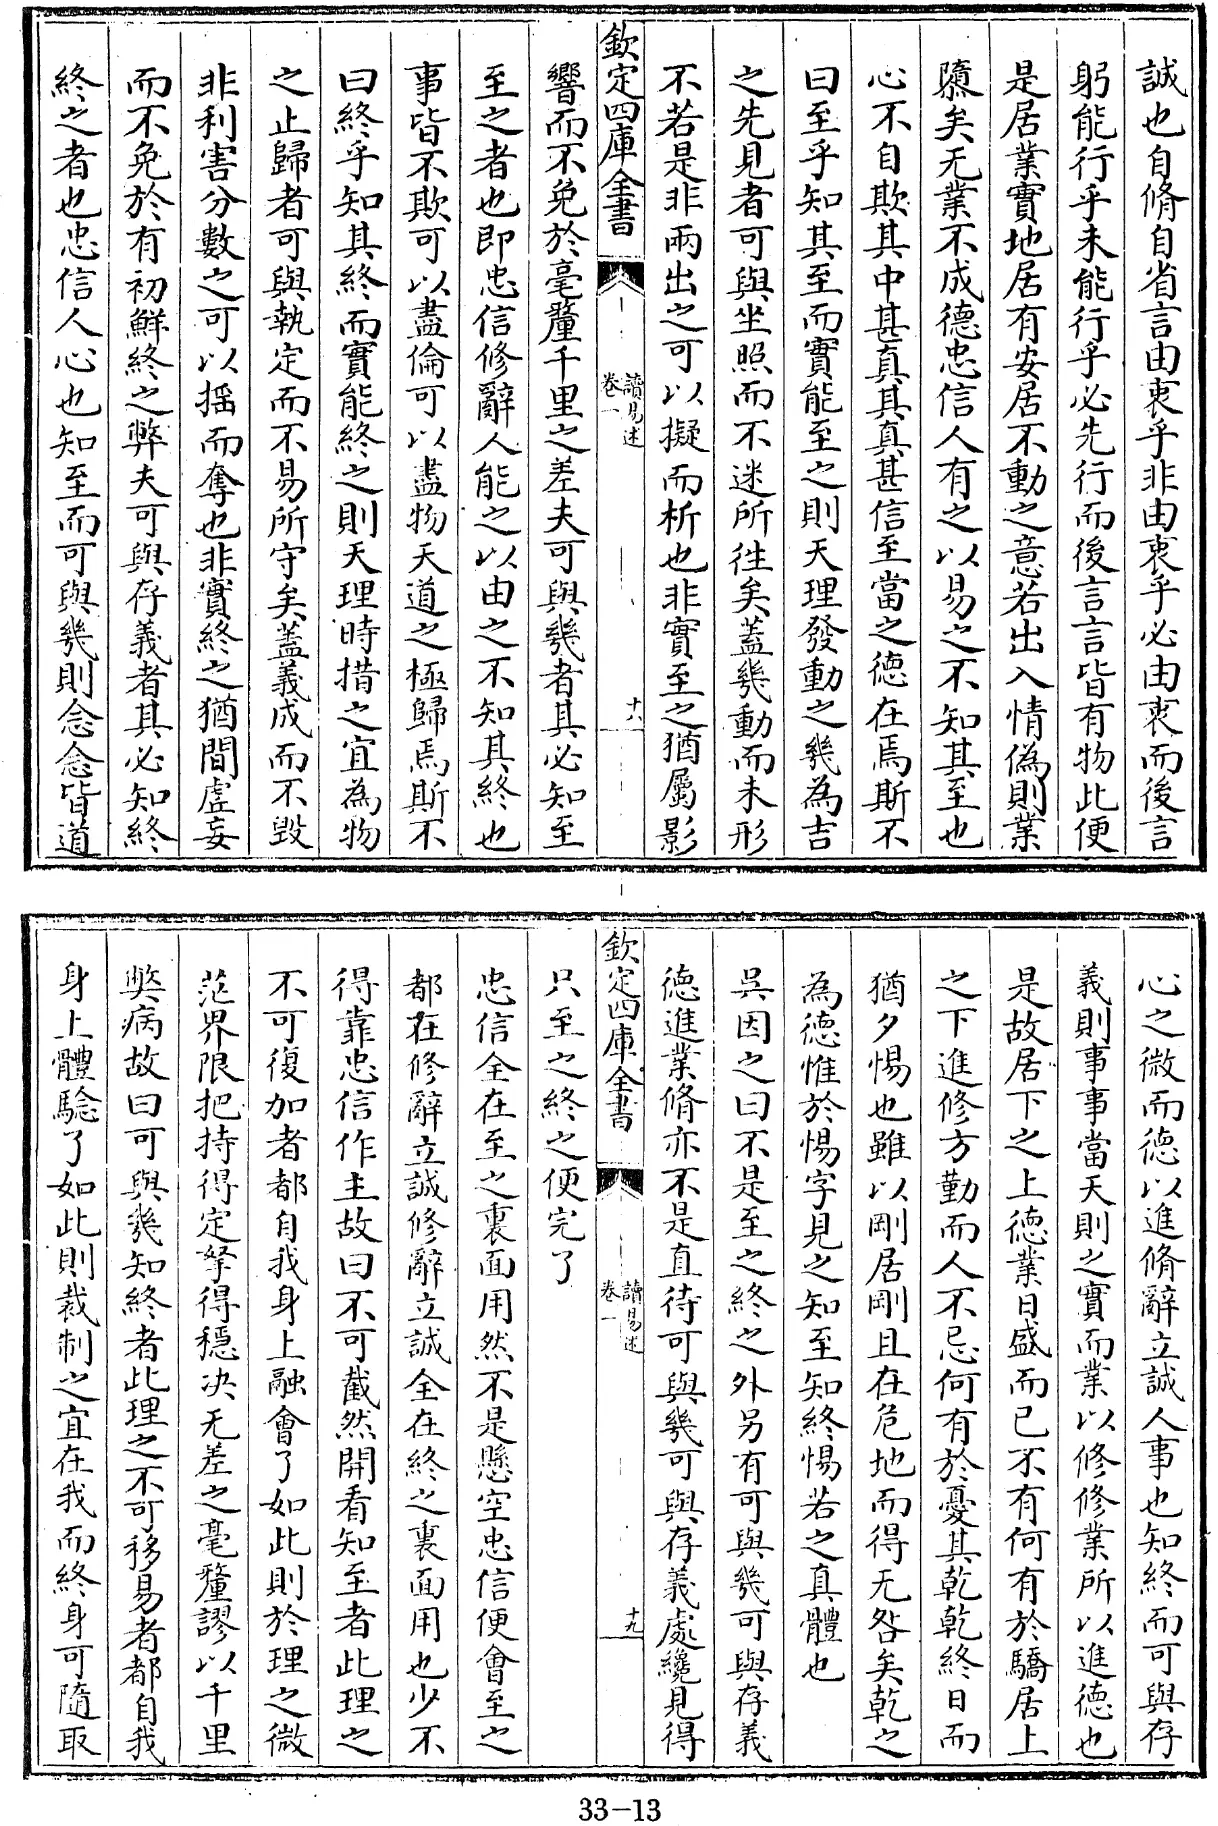 誠也自脩自省言由衷乎非由衷乎必由衷而後言
躬能行乎未能行乎必先行而後言言皆有物此便
是居業實地居有安居不動之意若出入情偽則業
隳矣无業不成德忠信人有之以易之不知其至也
心不自欺其中甚真其真甚信至當之德在焉斯不
曰至乎知其至而實能至之則天理發動之幾為吉
之先見者可與坐照而不迷所往矣蓋幾動而未形
不若是非兩出之可以擬而析也非實至之猶屬影
欽定四庫全書
讀易述
卷一
十八
響而不免於毫釐千里之差夫可與幾者其必知至
至之者也即忠信修辭人能之以由之不知其終也
事皆不欺可以盡倫可以盡物天道之極歸焉斯不
曰終乎知其終而實能終之則天理時措之宜為物
之止歸者可與執定而不易所守矣蓋義成而不毀
非利害分數之可以揺而奪也非實終之猶間虛妄
而不免於有初鮮終之弊夫可與存義者其必知終
終之者也忠信人心也知至而可與幾則念念皆道
心之微而德以進脩辭立誠人事也知終而可與存
義則事事當天則之實而業以修修業所以進德也
是故居下之上德業日盛而已不有何有於驕居上
之下進修方勤而人不忌何有於憂其乾乾終日而
猶夕惕也雖以剛居剛且在危地而得无咎矣乾之
為德惟於惕字見之知至知終惕若之真體也
吳因之曰不是至之終之外另有可與幾可與存義
德進業脩亦不是直待可與幾可與存義處纔見得
欽定四庫全書
讀易述
卷一
十九
只至之終之便完了
忠信全在至之裏面用然不是懸空忠信便會至之
都在修辭立誠修辭立誠全在終之裏面用也少不
得靠忠信作主故曰不可截然開看知至者此理之
不可復加者都自我身上融會了如此則於理之微
茫界限把持得定拏得穩决无差之毫釐謬以千里
弊病故曰可與幾知終者此理之不可移易者都自我
身上體驗了如此則裁制之宜在我而終身可隨取
33-13